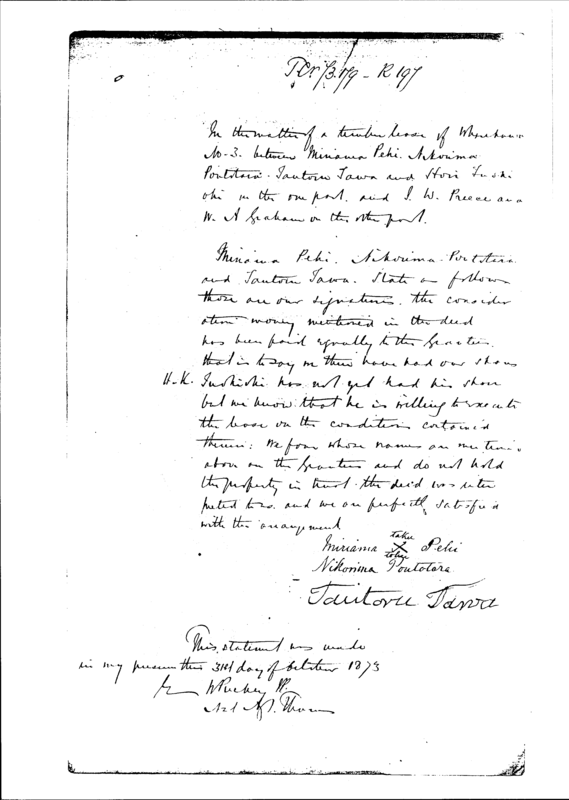 R 197
In the matter of a timber lease of
No-3. between Miriama Pehi. Nikorima
Poutotara. Tautoru Tawa and Hori Tuski
oki on the one part. and J. W. Preece and
W. A Graham on the other part.
Miriama Pehi. Nikorima Poutotara
and Tautoru Tawa. State as follows
those are our signatures. The consider
ation money mentioned in the deed
has been paid equally to the Grantees.
that is to say we three have had our share
H-K. has not yet had his share
but we know that he is willing to execute
the lease on the conditions contained
therein: We four whose names are mentioned
above are the Grantees and do not hold
the property in trust. the deed was inter
preted to us. and we are perfectly satisfied
with the arrangement
tohu
Miriama X Pehi
tohu
Nikorima Poutotara
Tautoru Tawa
This statement was made
in my presence this 31st day of October 1873
W Puckey